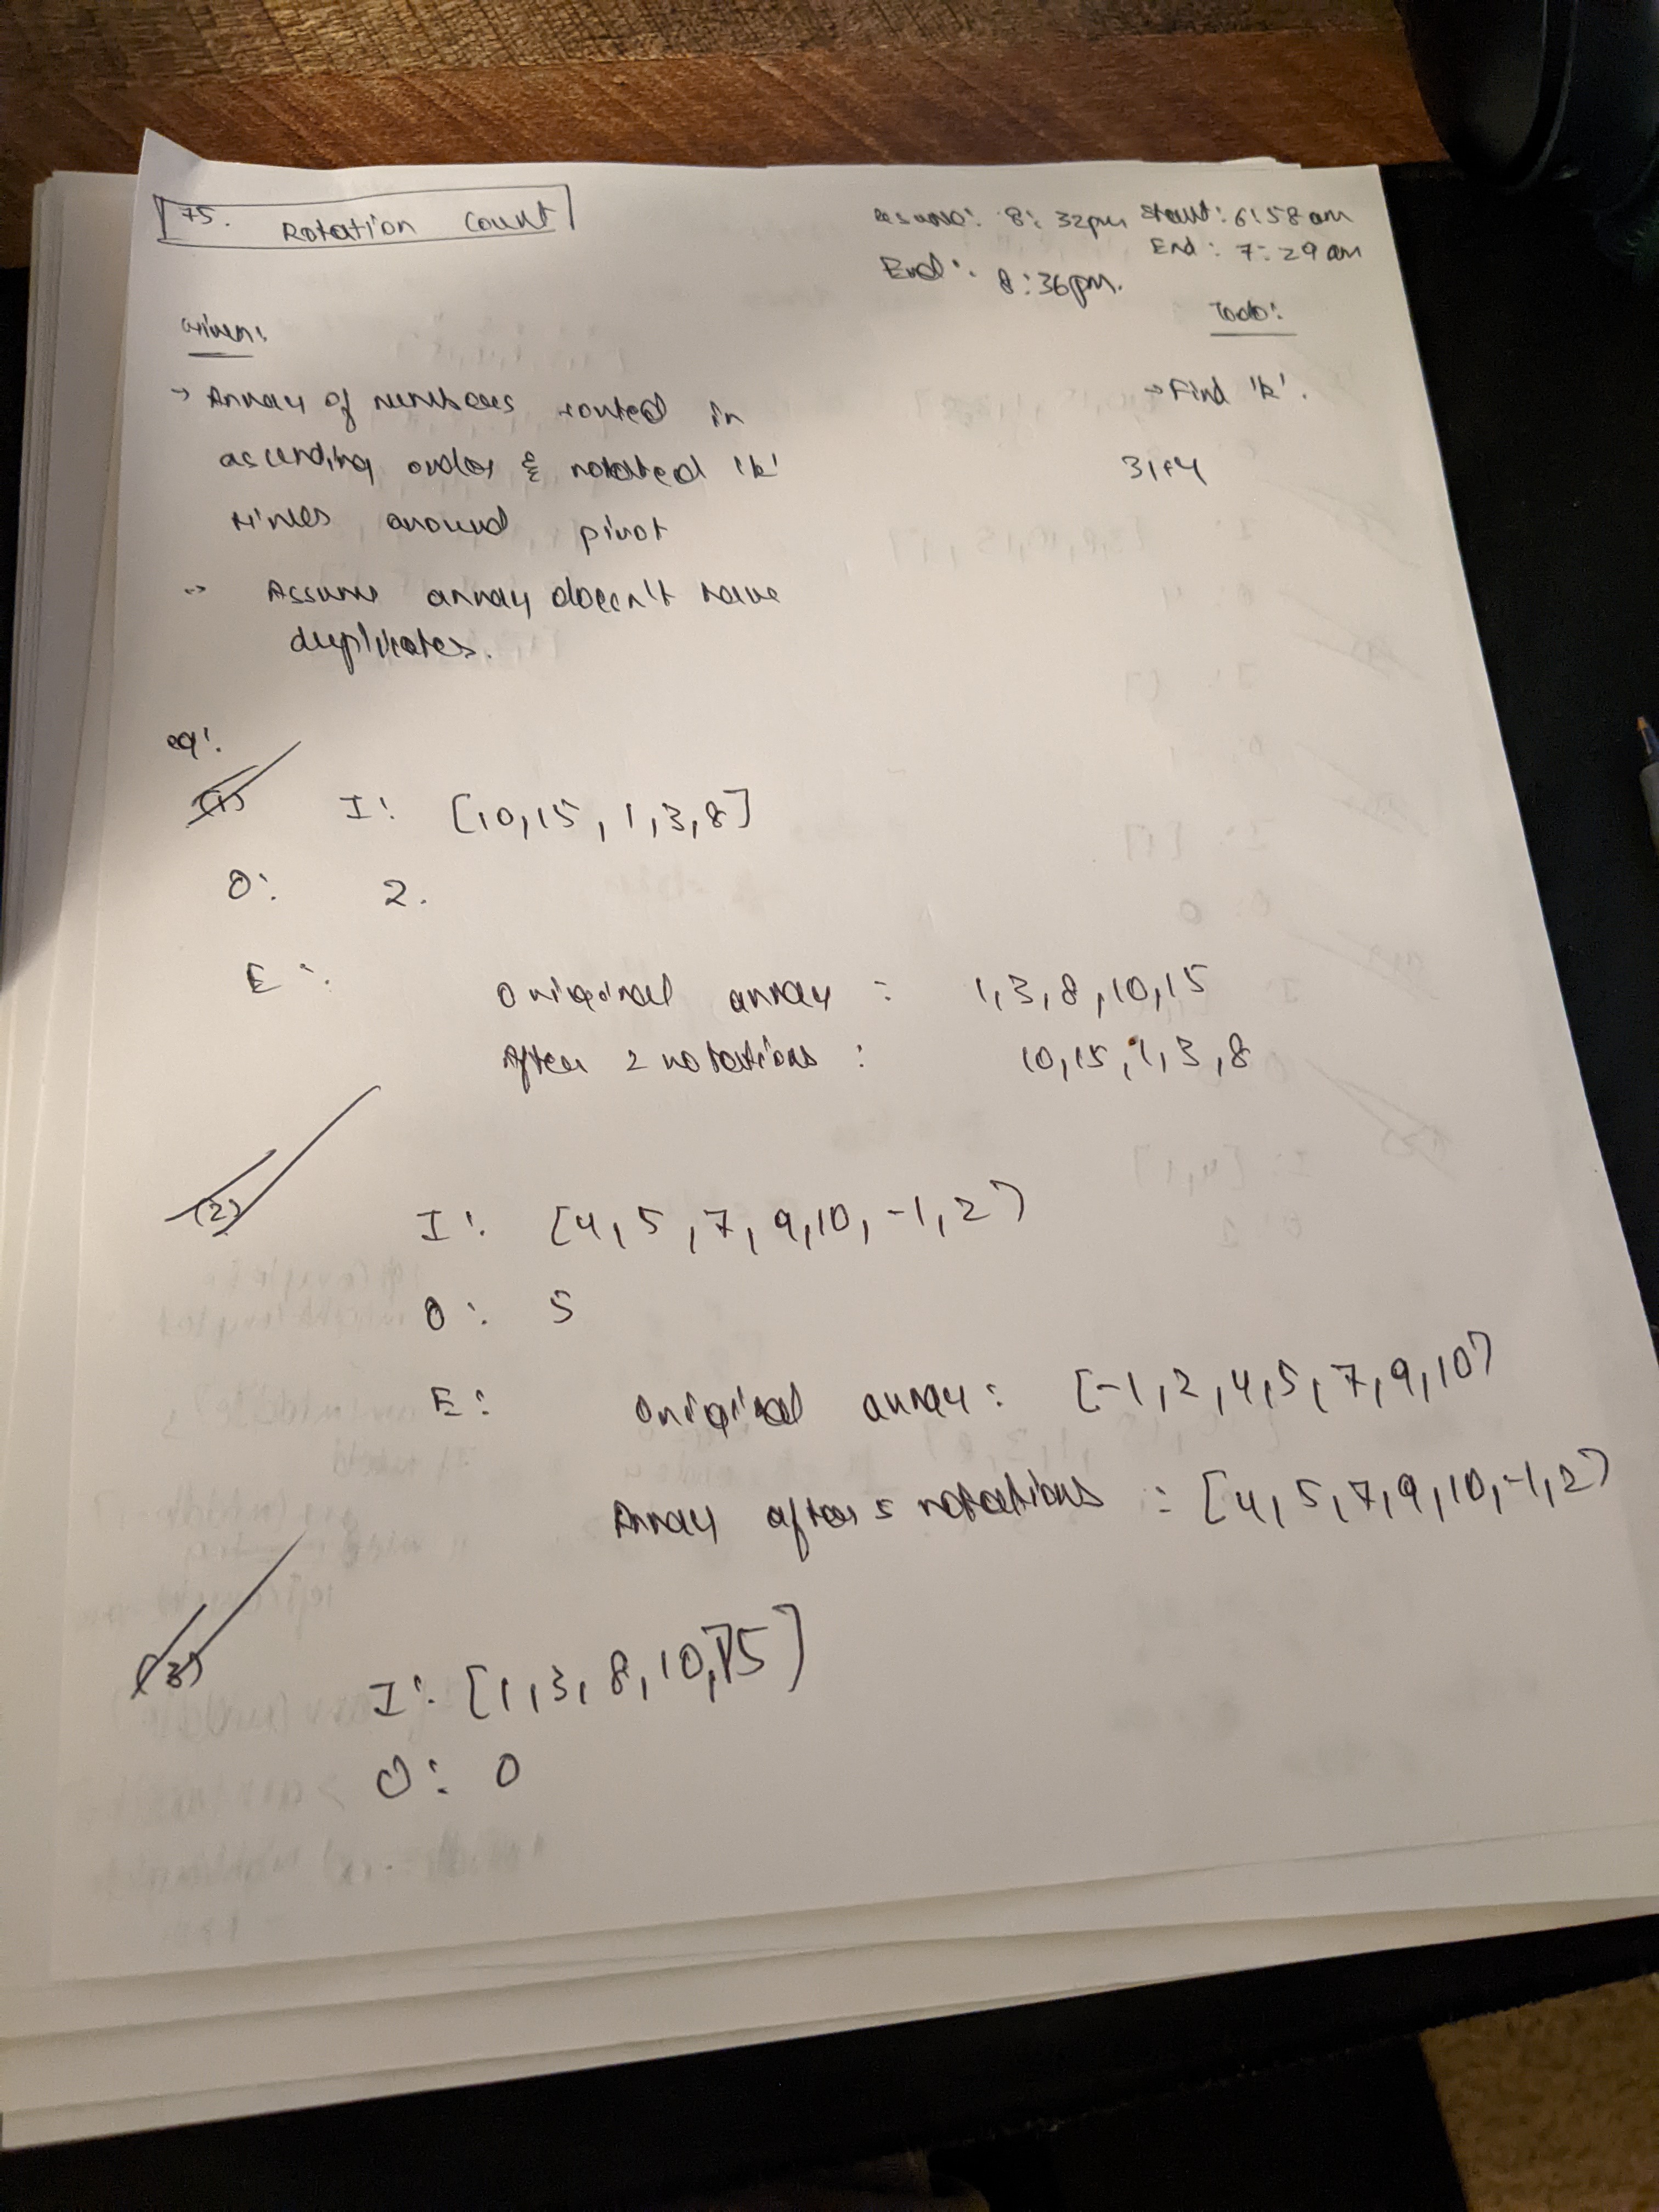 75. Rotation Count
Resume: 8:32pm Start: 6:58am
End: 8:36pm. End: 7:29am
Given:
Todo:
→ Array of numbers sorted in
ascending order & rotated 'k'
times around pivot
→ Find 'k'.
31+4
→ Assume array doesn't have
duplicates.
eg:
(1) I: [10,15,1,3,8]
O: 2.
E:
Original array : 1,3,8,10,15
After 2 rotations : 10,15,1,3,8
(2) I: [4,5,7,9,10,-1,2]
O: 5
E: Original array: [-1,2,4,5,7,9,10]
Array after 5 rotations : [4,5,7,9,10,-1,2]
(3) I: [1,3,8,10,15]
O: 0